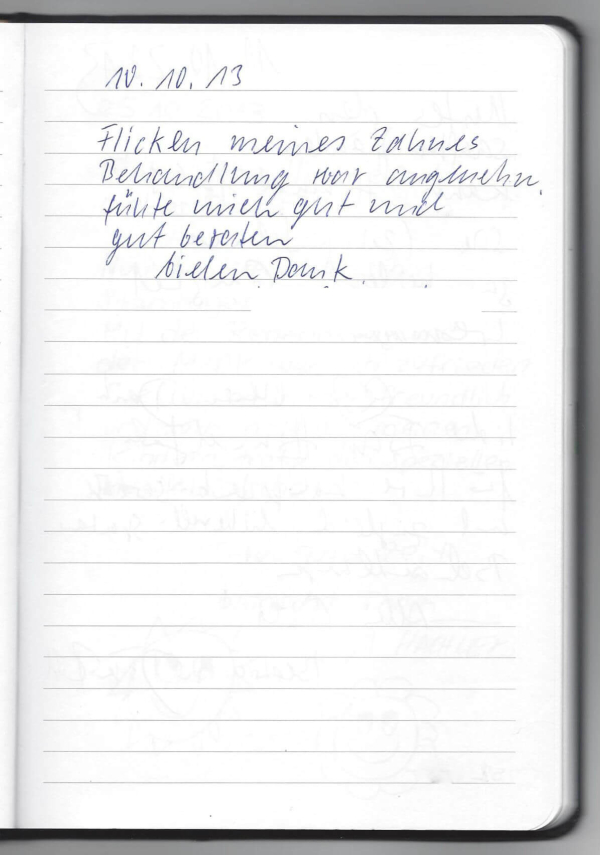 10. 10. 13
Flicken meines Zahnes
Behandlung war angenehm.
fühte mich gut und
gut beraten
vielen Dank.